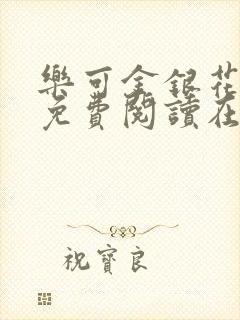 樂可金銀花
免費閱讀在
祝寶良